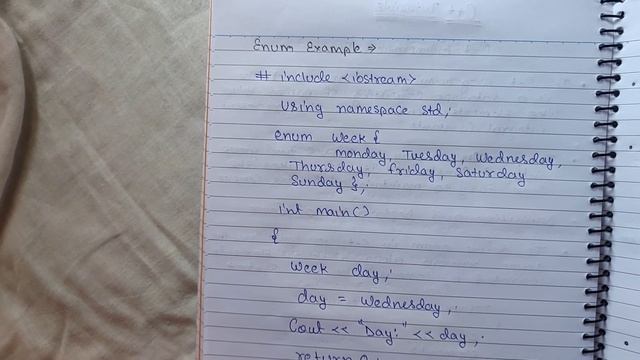 Enum Example ⇒
# include <iostream>
Using namespace std;
enum week {
monday, Tuesday, wednesday,
Thursday, friday, saturday
Sunday };
int main()
{
week day;
day = wednesday;
Cout << "Day:" << day;
return